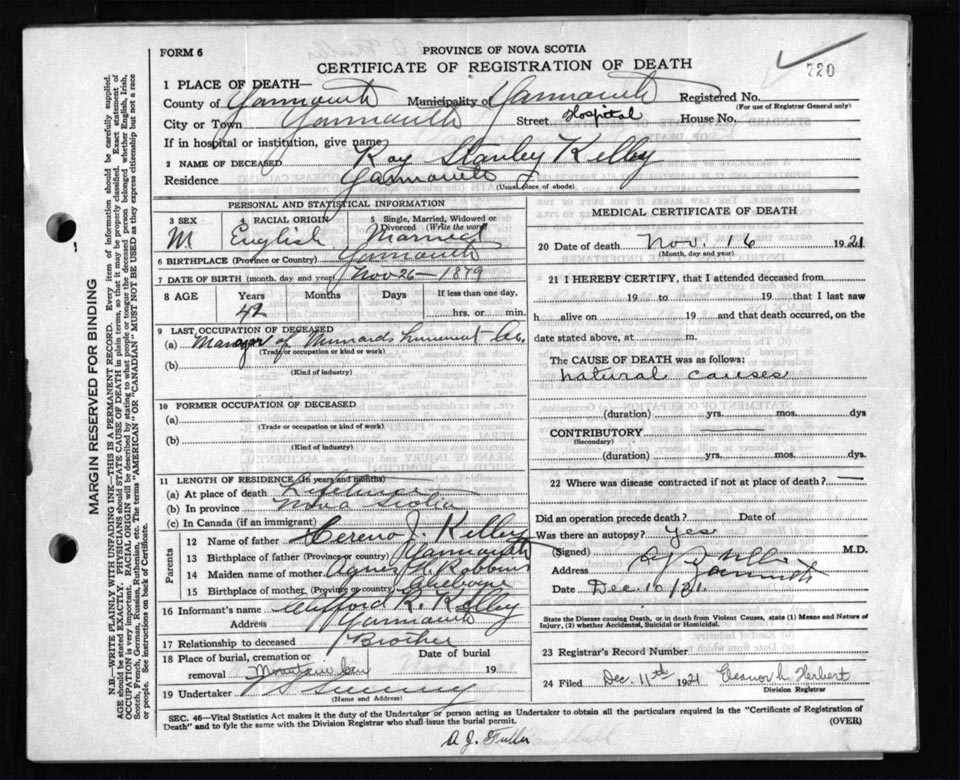 720
FORM 6
PROVINCE OF NOVA SCOTIA
CERTIFICATE OF REGISTRATION OF DEATH
1 PLACE OF DEATH—
County of Yarmouth Municipality of Yarmouth Registered No.
(For use of Registrar General only)
City or Town Yarmouth Street Hospital House No.
If in hospital or institution, give name
2 NAME OF DECEASED Roy Stanley Kelley
Residence Yarmouth
(Usual place of abode)
PERSONAL AND STATISTICAL INFORMATION
3 SEX 4 RACIAL ORIGIN 5 Single, Married, Widowed or Divorced (Write the word)
M English Married
6 BIRTHPLACE (Province or Country) Yarmouth
7 DATE OF BIRTH (month, day and year) Nov 26 — 1879
8 AGE Years Months Days If less than one day,
42 hrs. or min.
9 LAST OCCUPATION OF DECEASED
(a) Manager of Minards Liniment Co.
(Trade or occupation or kind or work)
(b)
(Kind of industry)
10 FORMER OCCUPATION OF DECEASED
(a)
(Trade or occupation or kind of work)
(b)
(Kind of industry)
11 LENGTH OF RESIDENCE (in years and months)
(a) At place of death Lifetime
(b) In province Nova Scotia
(c) In Canada (if an immigrant)
Parents
12 Name of father Cereno J. Kelley
13 Birthplace of father (Province or country) Yarmouth
14 Maiden name of mother Agnes Robbins
15 Birthplace of mother (Province or country)
16 Informant's name Clifford R. Kelley
Address Yarmouth
17 Relationship to deceased Brother
18 Place of burial, cremation or removal Mountain Cem Date of burial 19
19 Undertaker
(Name and Address)
MEDICAL CERTIFICATE OF DEATH
20 Date of death Nov. 16 1921
(Month, day and year)
21 I HEREBY CERTIFY, that I attended deceased from
19 to 19 that I last saw
h alive on 19 and that death occurred, on the
date stated above, at m.
The CAUSE OF DEATH was as follows:
natural causes
(duration) yrs. mos. dys
CONTRIBUTORY
(Secondary)
(duration) yrs. mos. dys.
22 Where was disease contracted if not at place of death? —
Did an operation precede death? Date of
Was there an autopsy? Yes
(Signed) M.D.
Address Yarmouth
Date Dec. 10/21.
State the Disease causing Death, or in death from Violent Causes, state (1) Means and Nature of Injury, (2) whether Accidental, Suicidal or Homicidal.
23 Registrar's Record Number
24 Filed Dec. 11th 1921 Eleanor L. Herbert
Division Registrar
SEC. 46—Vital Statistics Act makes it the duty of the Undertaker or person acting as Undertaker to obtain all the particulars required in the "Certificate of Registration of
Death" and to fyle the same with the Division Registrar who shall issue the burial permit. (OVER)
A. J. Fuller
MARGIN RESERVED FOR BINDING
N.B—WRITE PLAINLY WITH UNFADING INK—THIS IS A PERMANENT RECORD. Every item of information should be carefully supplied.
AGE should be stated EXACTLY. PHYSICIANS should STATE CAUSE OF DEATH in plain terms, so that it may be properly classified. Exact statement of
OCCUPATION is very important. RACIAL ORIGIN will be described by stating to what people or tongue the deceased person belonged whether English, Irish,
Scotch, French, German, Russian, Ruthenian, etc. The terms "AMERICAN" OR "CANADIAN" MUST NOT BE USED as they express citizenship but not a race
or people. See instructions on back of Certificate.